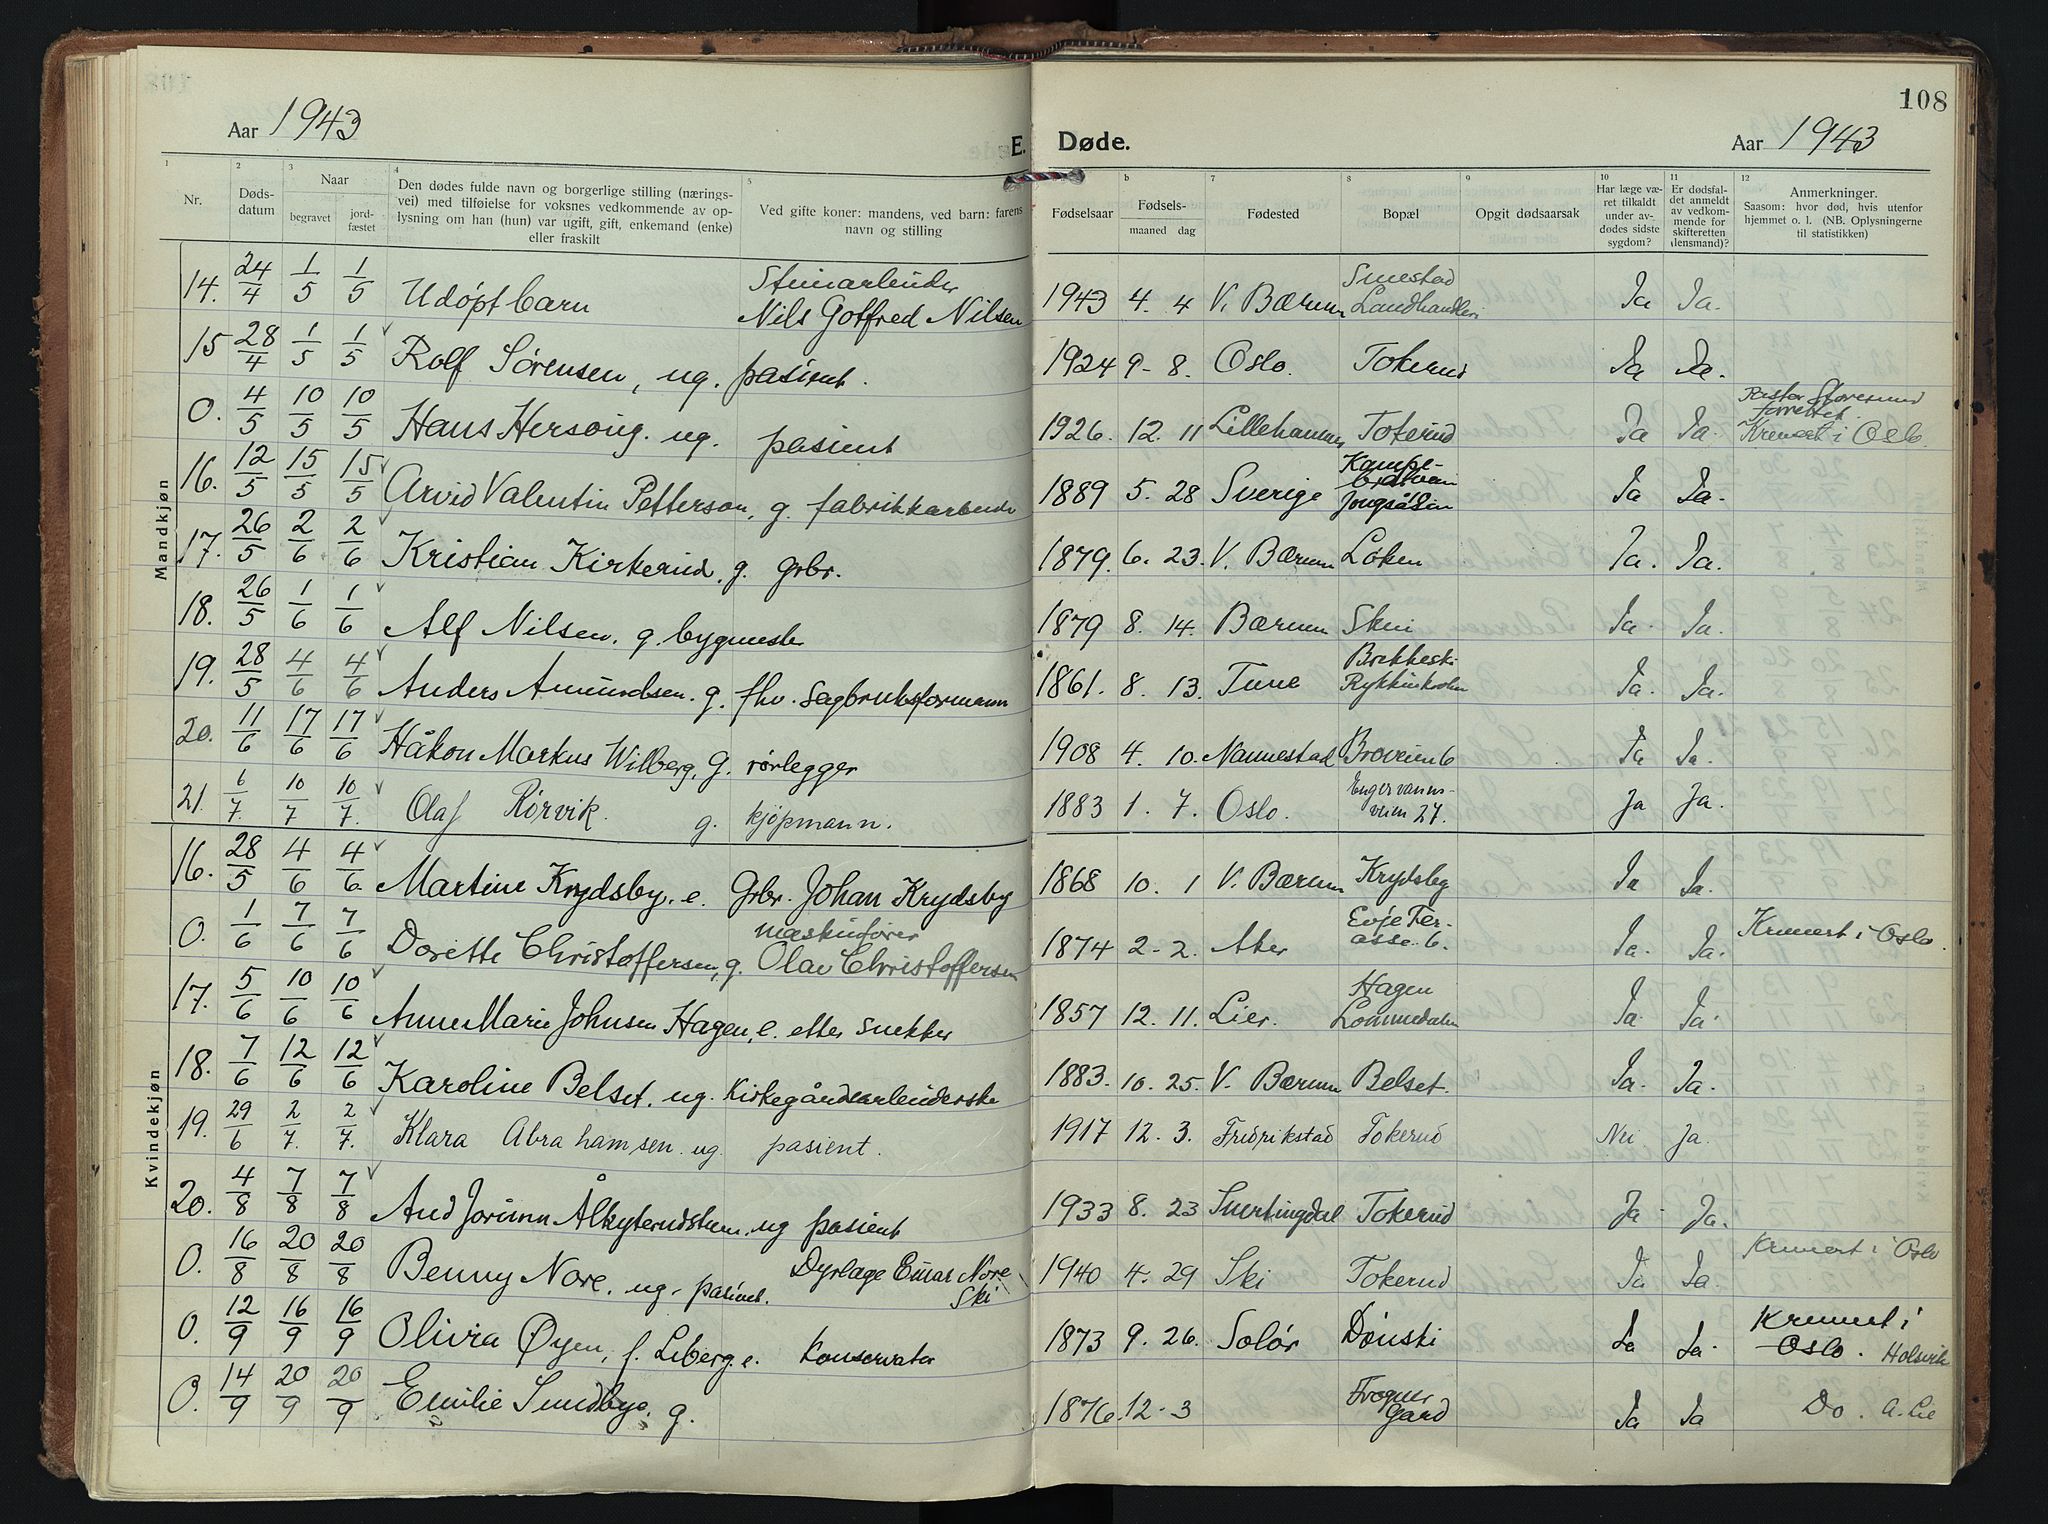 Aar 1943
E. Døde.
Aar 1943
108
1 2 3 4 5 b 7 8 9 10 11 12
Nr.
Døds-
datum
Naar
begravet
jord-
fæstet
Den dødes fulde navn og borgerlige stilling (nærings-
vei) med tilføielse for voksnes vedkommende av op-
lysning om han (hun) var ugift, gift, enkemand (enke)
eller fraskilt
Ved gifte koner: mandens, ved barn: farens
navn og stilling
Fødselsaar
Fødsels-
maaned dag
Fødested
Bopæl
Opgit dødsaarsak
Har læge væ-
ret tilkaldt
under av-
dødes sidste
sygdom?
Er dødsfal-
det anmeldt
av vedkom-
mende for
skifteretten
(lensmand)?
Anmerkninger.
Saasom: hvor død, hvis utenfor
hjemmet o. l. (NB. Oplysningerne
til statistikken)
Mandkjøn
14. 24/4 1/5 1/5 Udøpt barn Stenarbeider Nils Gotfred Nilsen 1943 4. 4 V. Bærum Smestad Landhandleri Ja Ja.
15 28/4 1/5 1/5 Rolf Sørensen, ug. pasient. 1924 9-8. Oslo. Tokerud Ja Ja.
0. 4/5 10/5 10/5 Hans Hersoug. ug. pasient 1926. 12. 11 Lillehammer Tokerud Ja Ja. Pastor Storesund forrettet. Kremert i Oslo.
16. 12/5 15/5 15/5 Arvid Valentin Petterson, g. fabrikkarbeider 1889 5. 28 Sverige Jongsåsen Ja Ja.
17. 26/5 2/6 2/6 Kristian Kirkerud, g. grbr. 1879. 6. 23. V. Bærum Løken Ja. Ja.
18. 26/5 1/6 1/6 Alf Nilsen. g. bygmester 1879 8. 14. Bærum Skui Ja. Ja.
19. 28/5 4/6 4/6 Anders Amundsen. g. fhv. sagbruksformann 1861. 8. 13. Tune Brekkeski Rykkinkroken Ja. Ja.
20. 11/6 17/6 17/6 Håkon Markus Wilberg, g. rørlegger 1908 4. 10. Nannestad Broveien 6 Ja Ja.
21. 6/7. 10/7 10/7. Olaf Rørvik. g. kjøpmann. 1883 1. 7. Oslo. Engervanns- veien 27. Ja Ja.
Kvindekjøn
16. 28/5 4/6 4/6. Martine Krydsby. e. Grbr. Johan Krydsby 1868 10. 1 V. Bærum Krydsby Ja Ja.
0. 1/6 7/6 7/6 Dorette Christoffersen, g. maskinfører Olav Christoffersen 1874 2-2. Aker Evje Ter- asse. 6. Ja. Ja. Kremert i Oslo.
17. 5/6 10/6 10/6 Anne Marie Johnsen Hagen, e. etter snekker 1857 12. 11. Lier. Hagen Lommedalen Ja. Ja.
18. 7/6 12/6 12/6 Karoline Belset. ug. Kirkegårdsarbeiderske 1883. 10. 25. V. Bærum Belset. Ja. Ja.
19. 29/6 2/7. 2/7. Klara Abrahamsen. ug. pasient. 1917 12. 3. Fredrikstad Tokerud Nei Ja.
20. 4/8 7/8 7/8 Aud Jorunn ug pasient 1933 8. 23 Snertingdal Tokerud Ja. Ja.
0. 16/8 20/8 20/8 Benny Nore. ug. pasient. Dyrlæge Einar Nore Ski 1940 4. 29 Ski Tokerud Ja Ja. Kremert i Oslo
0. 12/9 16/9 16/9 Olivia Øyen, f. Liberg. e. Konservator 1873 9. 26. Solør Dønski Ja Ja. Kremert i Oslo. Holsvik
0. 14/9 20/9 20/9 Emilie Sundbye. g. 1876. 12-3 Frogner Gård Ja Ja Do. A. Lie